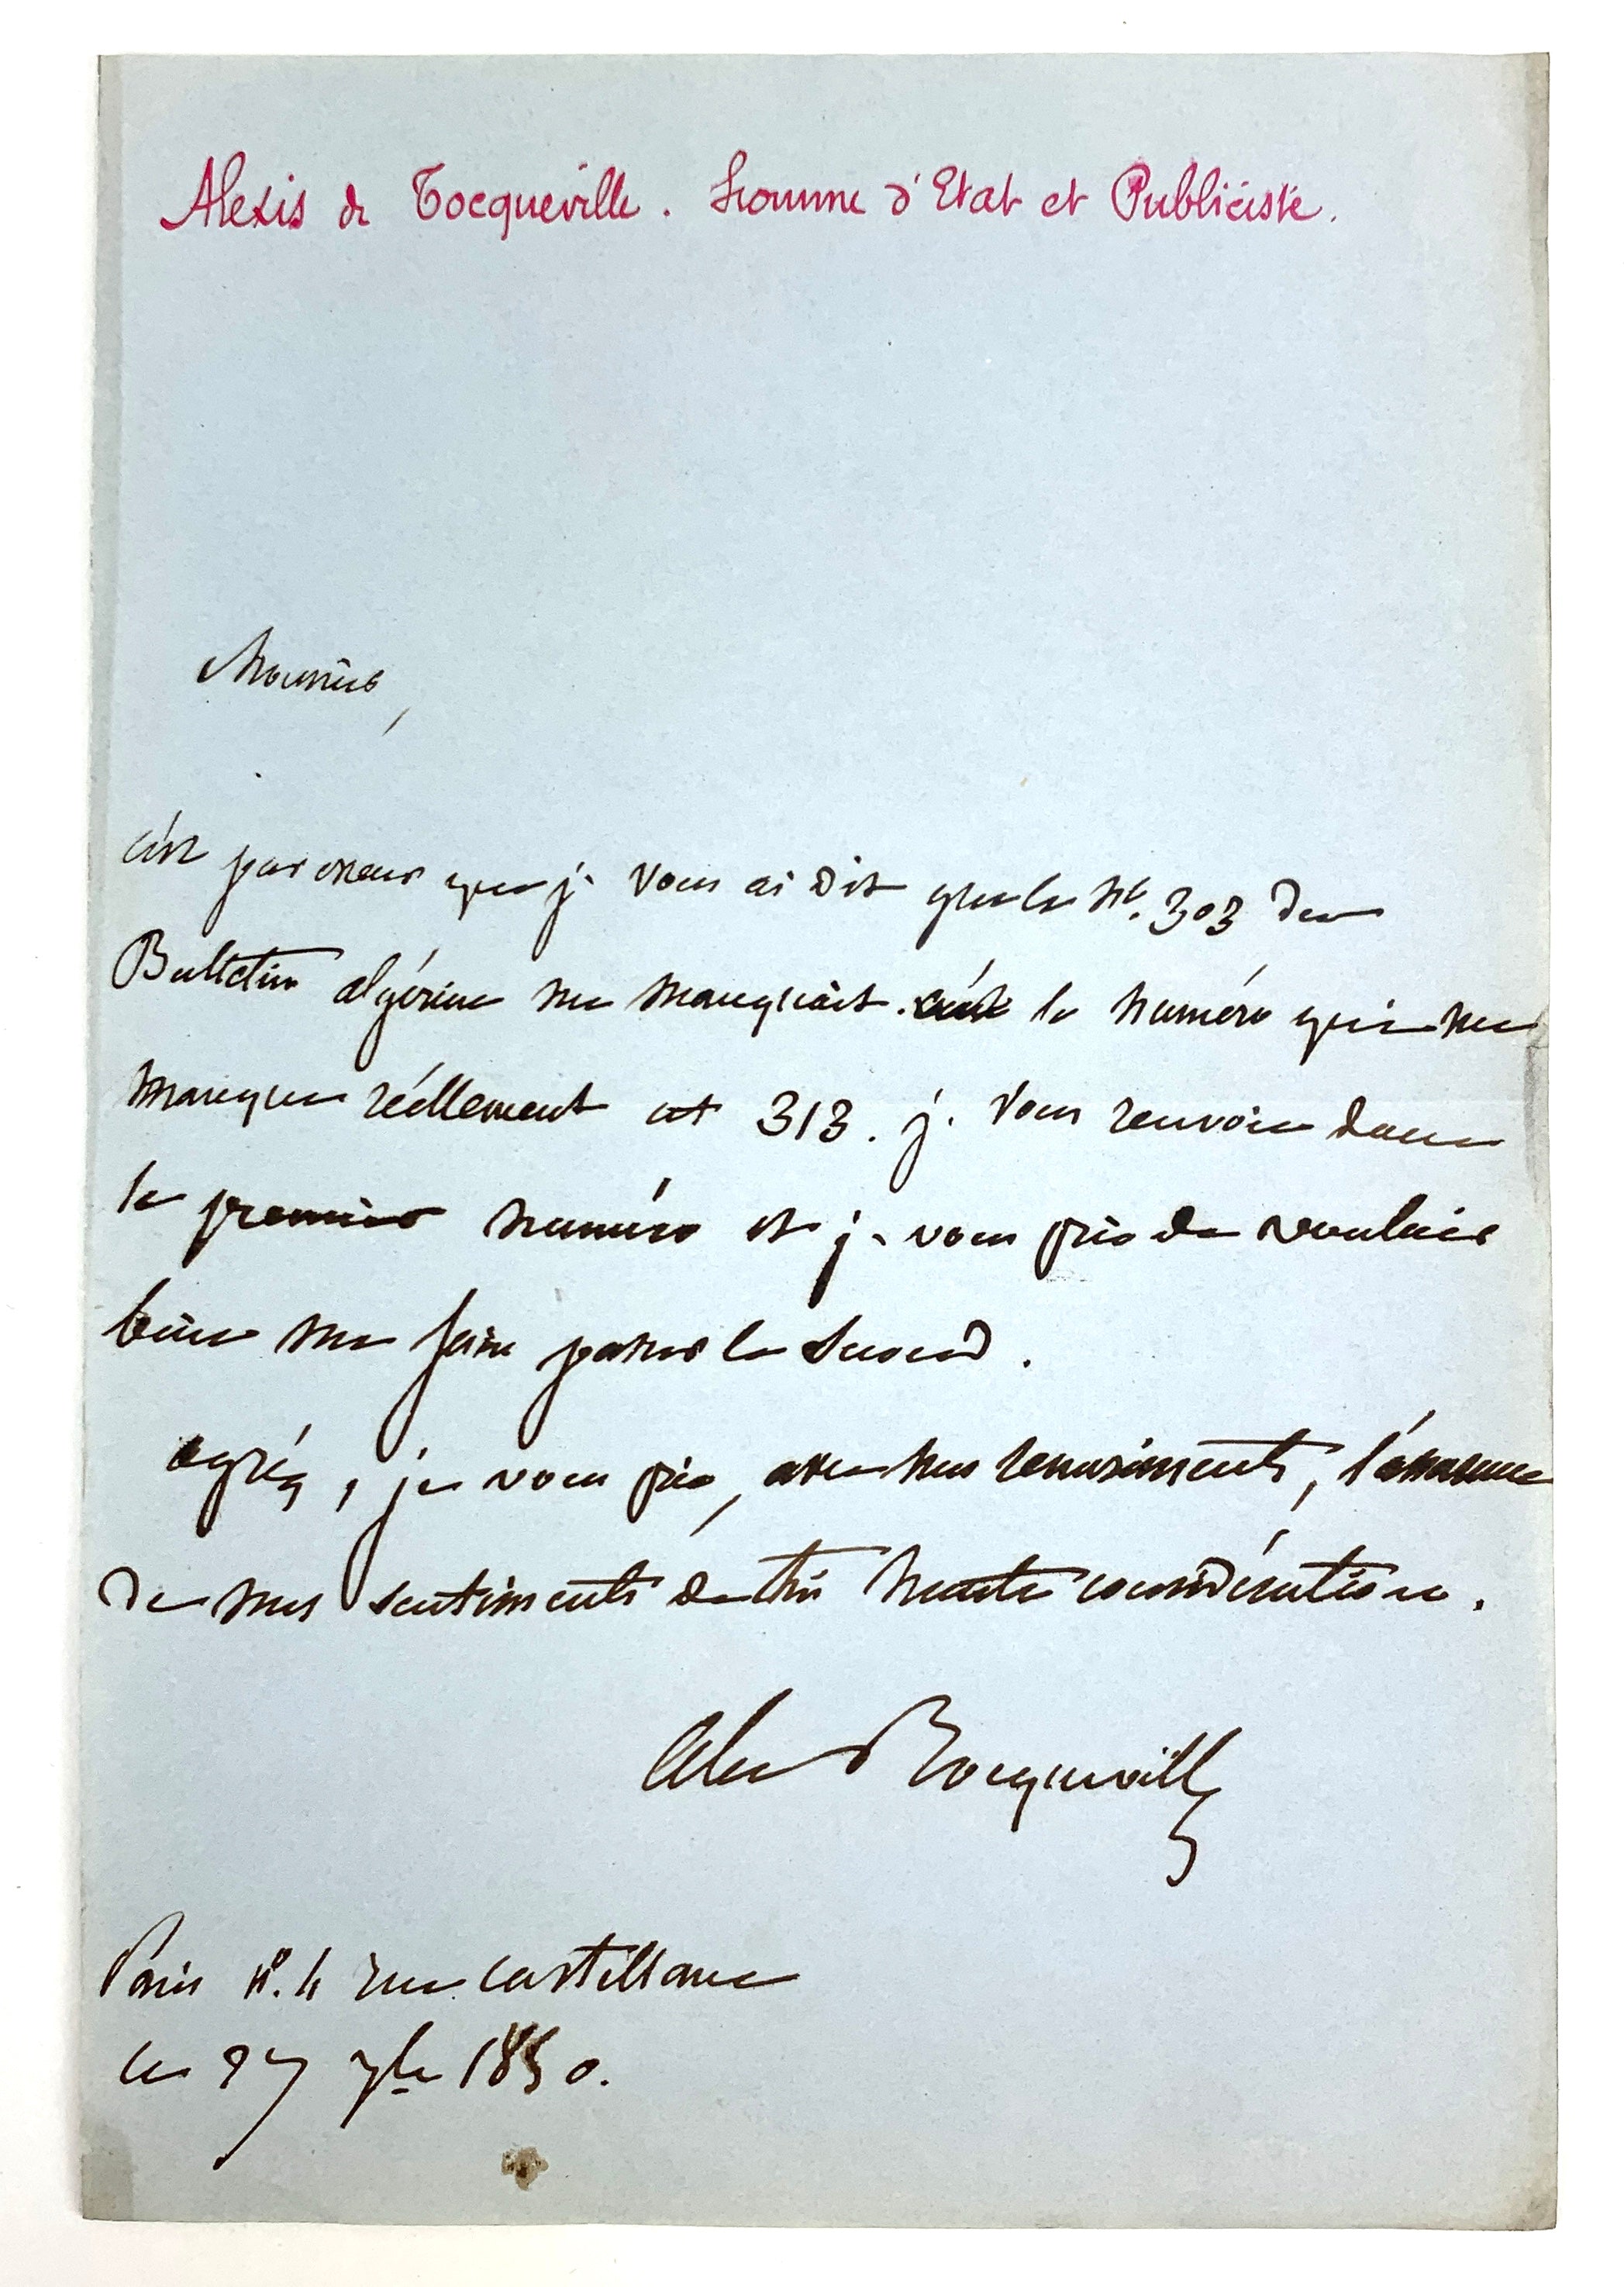 Alexis de Tocqueville. Homme d'Etat et Publiciste.
Monsieur,
c'est par erreur que je vous ai dit que le No. 303 du
Bulletin algérien me manquait. le numéro qui me
manque réellement est 313. je vous renvoie donc
le premier numéro et je vous prie de vouloir
bien me faire passer le second.
agréez, je vous prie, avec mes remerciments, l'assurance
de mes sentiments de très haute considération.
Alexis de Tocqueville
Paris No. 4 rue Castellane
le 27 7bre 1850.